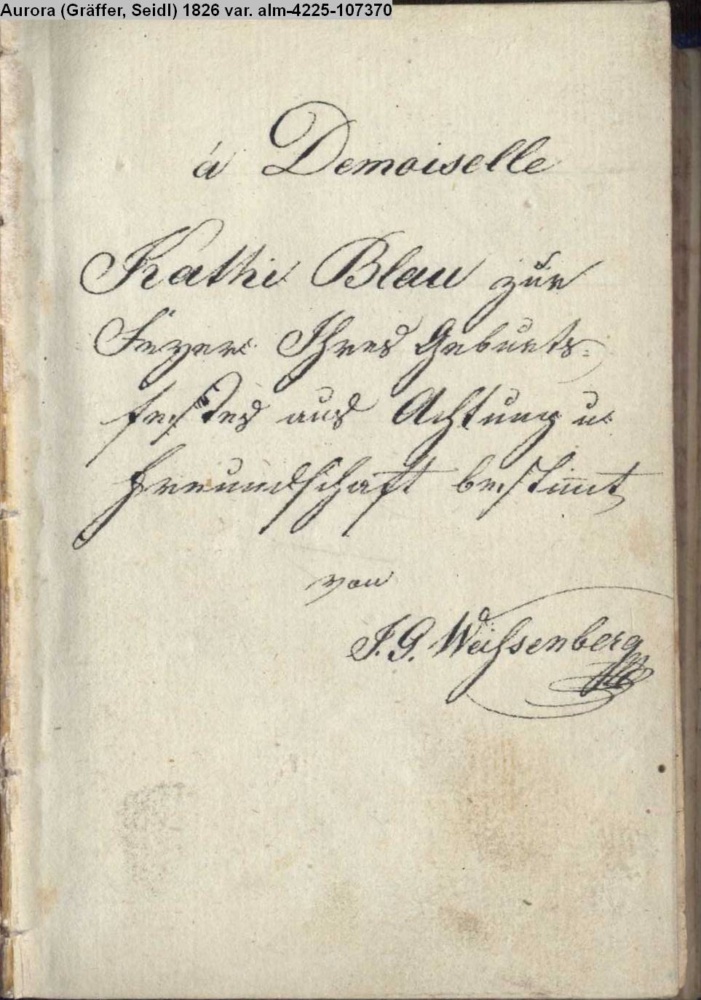 Aurora (Gräffer, Seidl) 1826 var. alm-4225-107370
á Demoiselle
Kathi Blau zur
Feyer Ihres Geburts-
festes aus Achtung u.
Freundschaft bestim̅t
von
J. G. Weißenberg